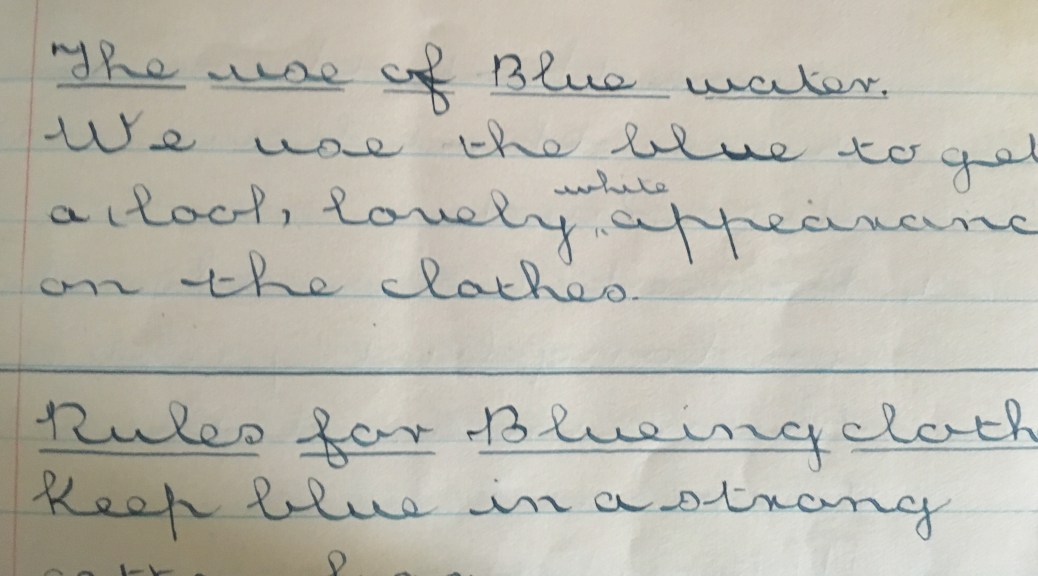 The use of Blue water.
We use the blue to get
a cool, lovely white appearanc
on the clothes.
Rules for Blueing cloth
Keep blue in a strong